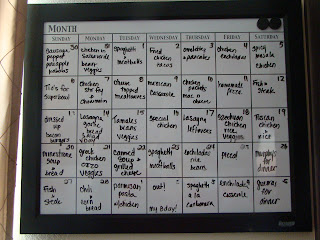 MONTH
SUNDAY MONDAY TUESDAY WEDNESDAY THURSDAY FRIDAY SATURDAY
30 31 1 2 3 4 5
sausage, chicken in spaghetti fried omelettes chicken spicy
pepper & chicken & enchiladas masala
pineapple meatballs tacos pancakes chicken
beans
veggies
6 7 8 9 10 11 12
Tio's for chicken cheese mexican chicken homemade fish &
Superbowl stir fry topped casserole pizza steak
& meatloaves mac n
chowmein cheese
13 14 15 16 17 18 19
lasagna tamales special lasagna chicken
up garlic beans chicken leftovers chicken n
bacon bread veggies rice rice
burgers salad veggies
20 21 22 23 24 25 26
minestrone greek canned spaghetti enchiladas pizza
soup chicken soup & & rice for
& orzo grilled meatballs beans dinner
bread veggies cheese
27 28 1 2 3 4 5
fish chili parmesan out! spaghetti enchilada
& & pasta a la casserole for
steak corn w/chicken my bday! carbonara dinner
bread